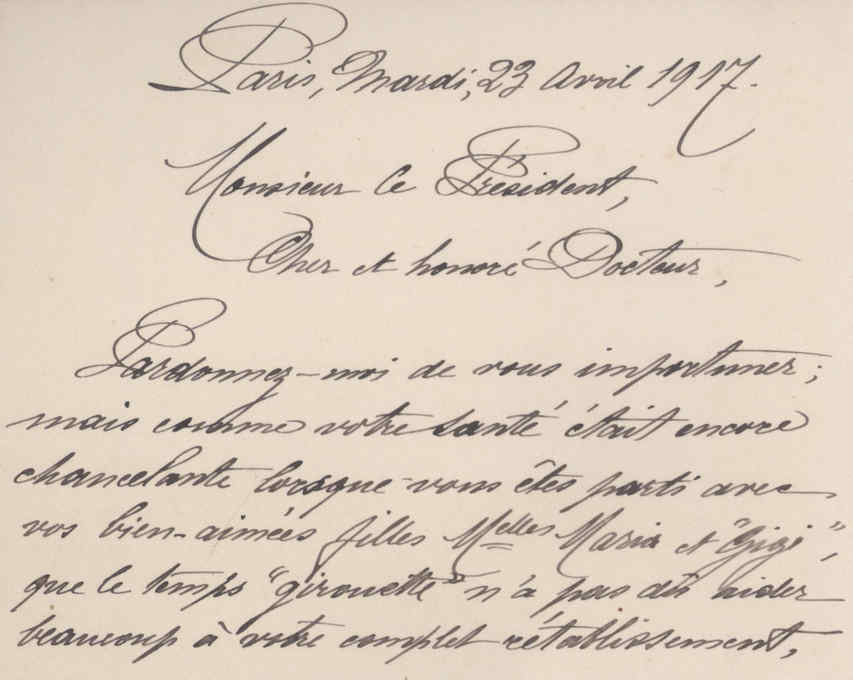 Paris, Mardi, 23 Avril 1917.
Monsieur le Président,
Cher et honoré Docteur,
Pardonnez-moi de vous importuner;
mais comme votre santé était encore
chancelante lorsque vous êtes parti avec
vos bien-aimées filles Melles Maria et "Gigi",
que le temps "girouette" n'a pas dû aider
beaucoup à votre complet rétablissement,